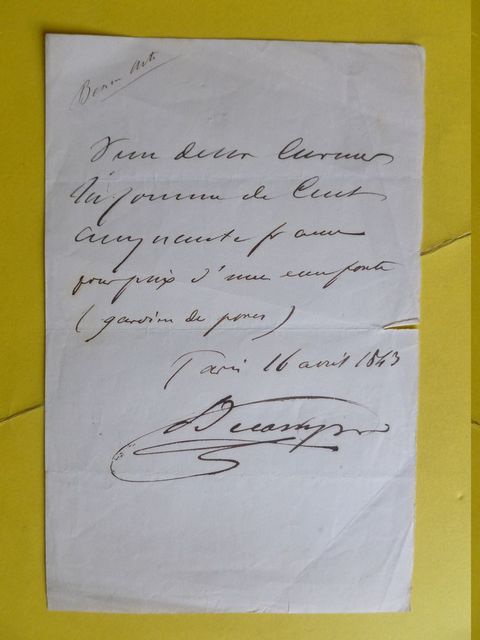 Beaux Arts
de Cent
cinquante francs
pour prix d'une eau forte
(gardien de porcs)
Paris 16 avril 1843
Decamps